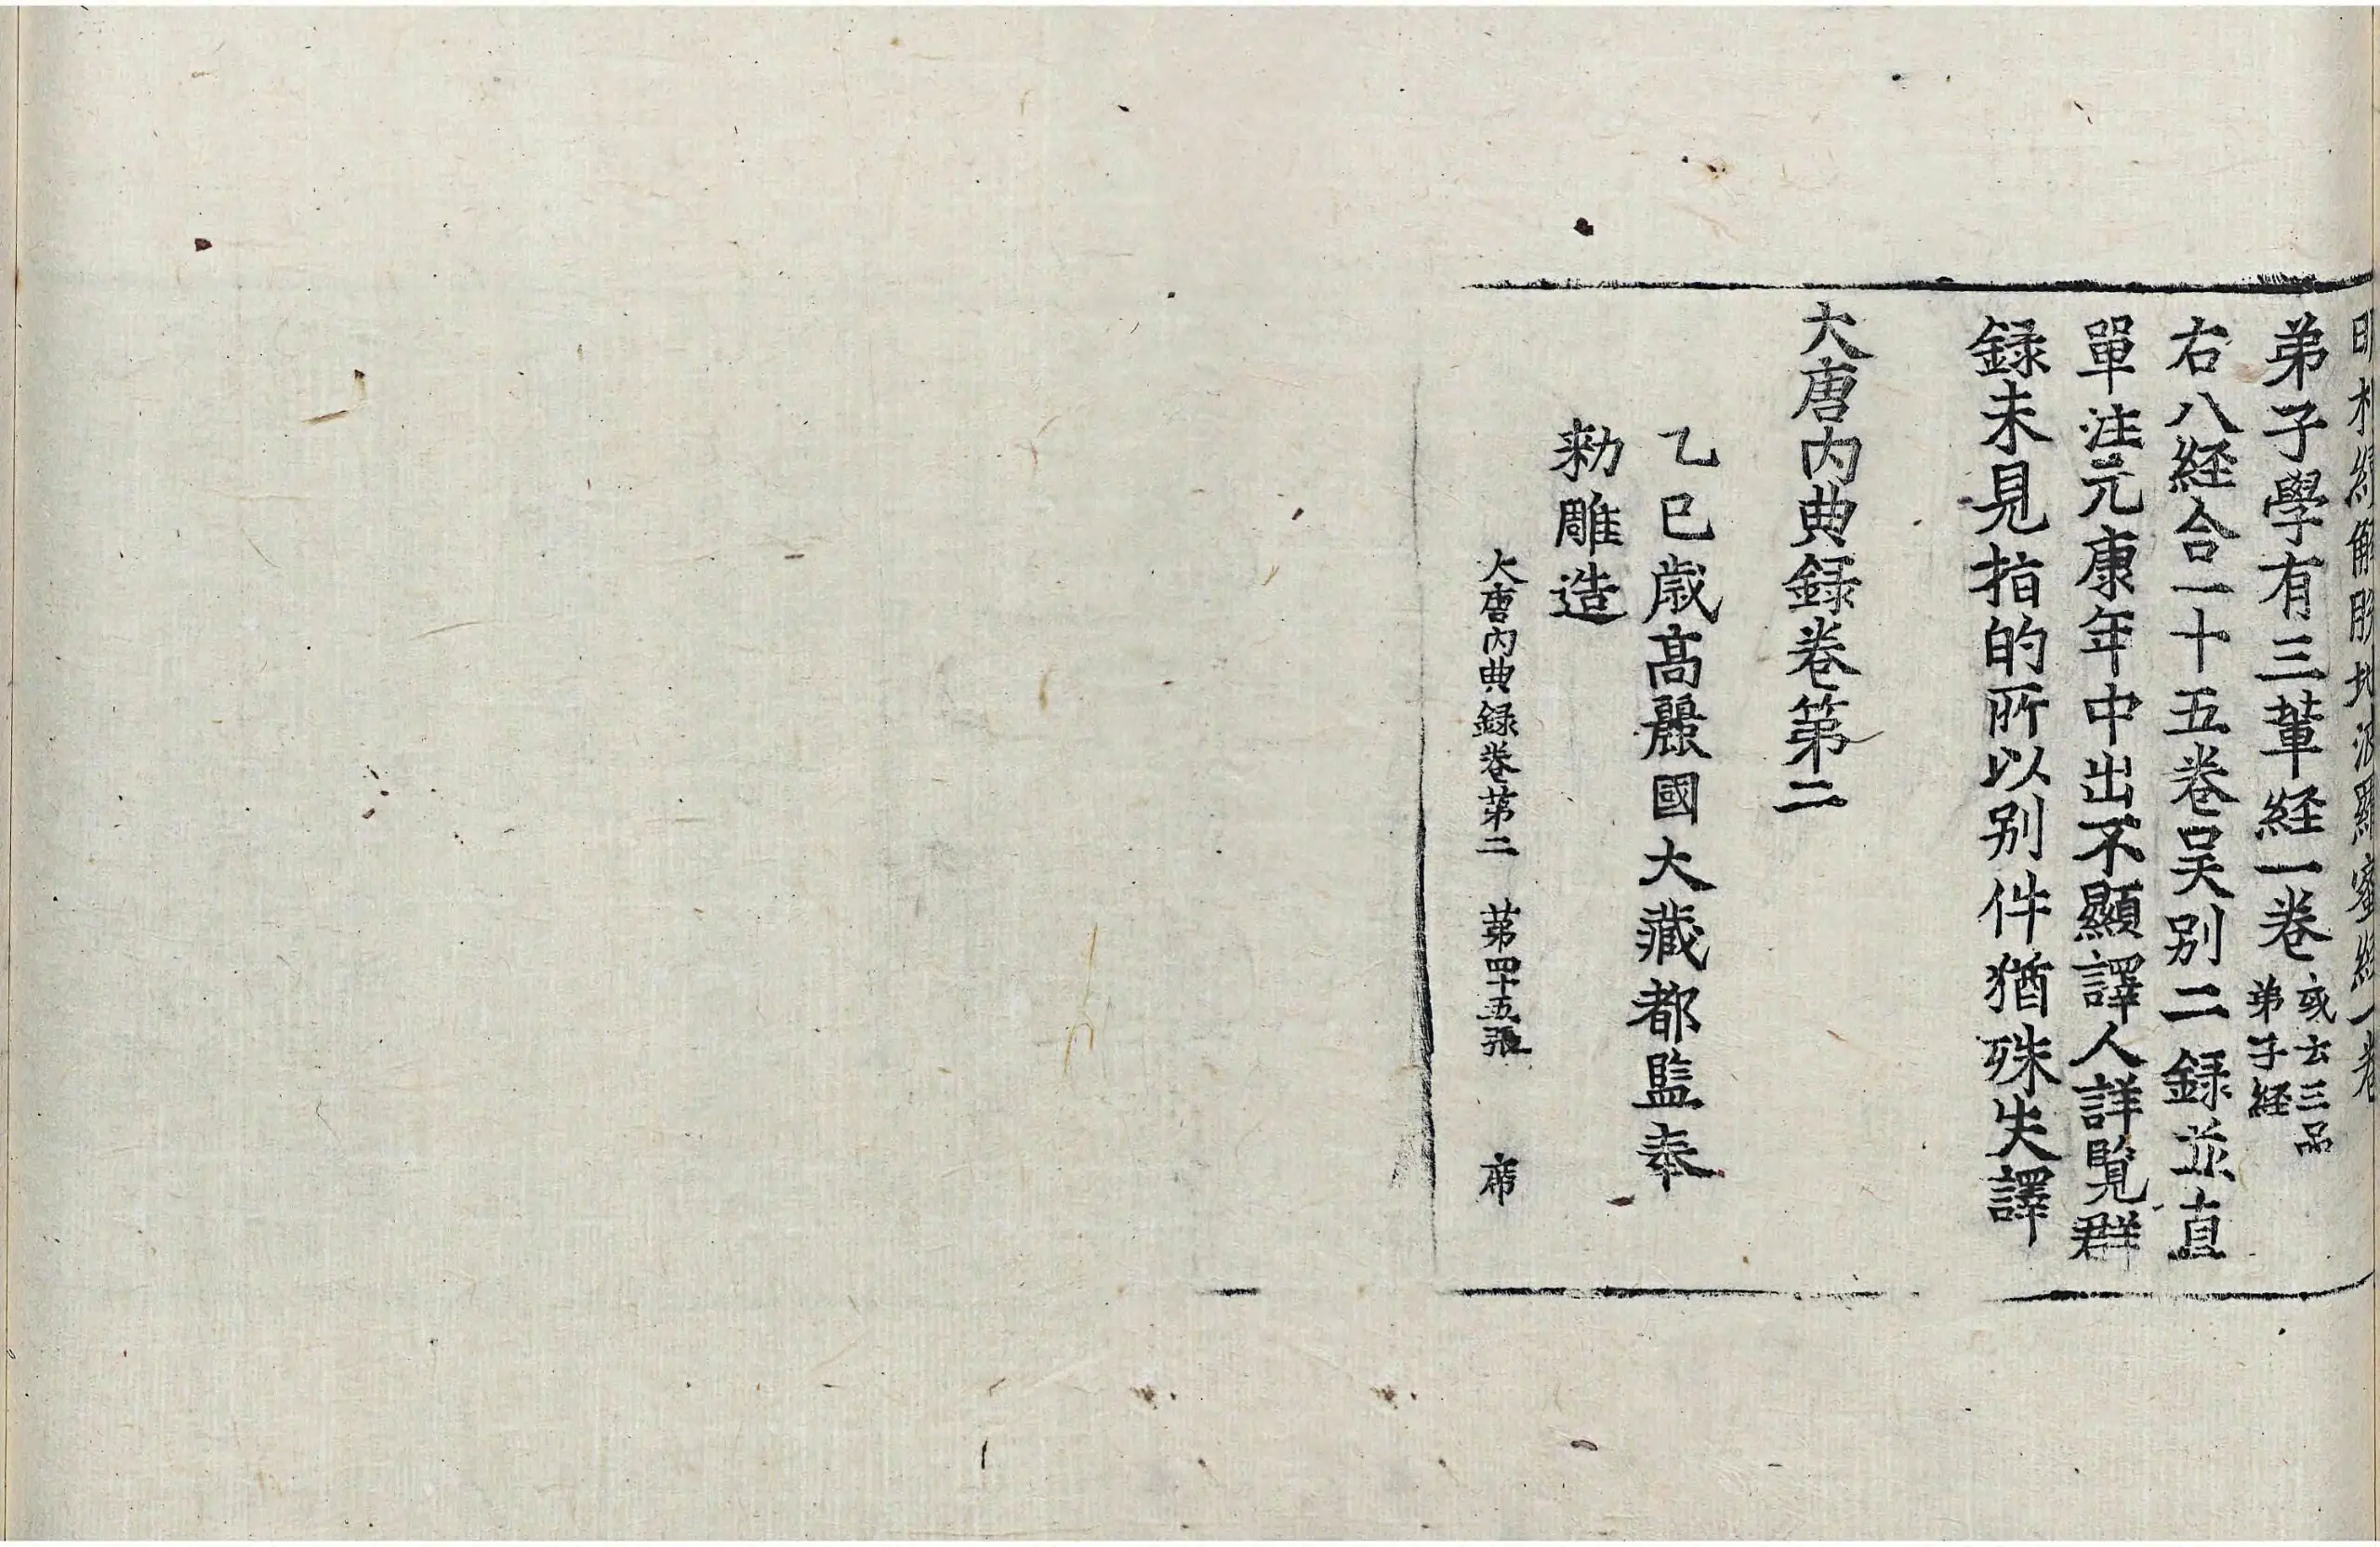 明相續解脫地波羅蜜經一卷
弟子學有三輩経一卷 或云三品弟子経
右八経合一十五卷吴别二録並直
單注元康年中出不顯譯人詳覽群
録未見指的所以别件猶殊失譯
大唐内典録卷第二
乙巳歳髙麗國大藏都監奉
勑雕造
大唐内典録卷第二　第四十五張　席